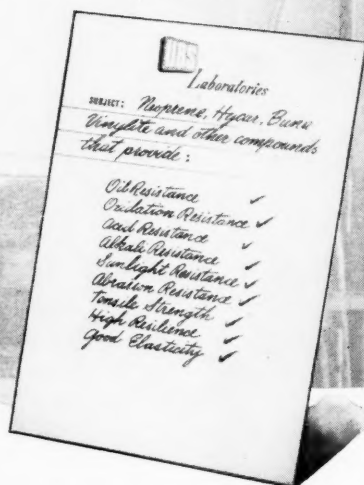 Laboratories
SUBJECT: Neoprene, Hycar, Buna
Vinylite and other compounds
that provide:
Oil Resistance ✓
Oxidation Resistance ✓
Acid Resistance ✓
Alkali Resistance ✓
Sunlight Resistance ✓
Abrasion Resistance ✓
Tensile Strength ✓
High Resilience ✓
Good Elasticity ✓